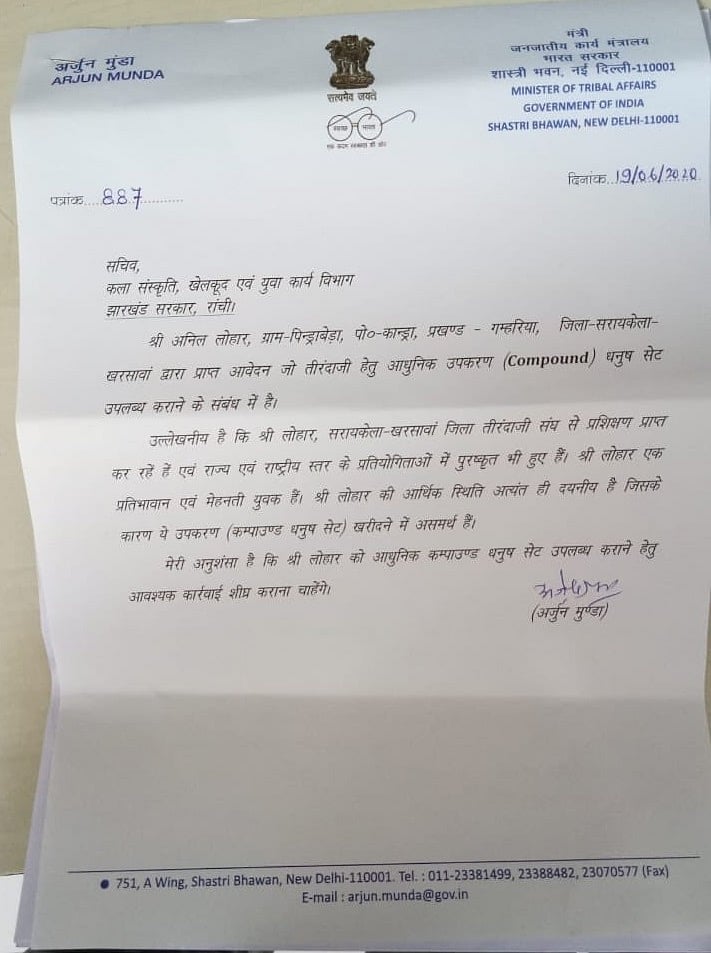 अर्जुन मुंडा
ARJUN MUNDA
सत्यमेव जयते
स्वच्छ भारत
एक कदम स्वच्छता की ओर
मंत्री
जनजातीय कार्य मंत्रालय
भारत सरकार
शास्त्री भवन, नई दिल्ली-110001
MINISTER OF TRIBAL AFFAIRS
GOVERNMENT OF INDIA
SHASTRI BHAWAN, NEW DELHI-110001
पत्रांक....887...........
दिनांक..19/06/2020
सचिव,
कला संस्कृति, खेलकूद एवं युवा कार्य विभाग
झारखंड सरकार, रांची।
श्री अनिल लोहार, ग्राम-पिन्ड्राबेड़ा, पो०-कान्ड्रा, प्रखण्ड - गम्हरिया, जिला-सरायकेला-
खरसावां द्वारा प्राप्त आवेदन जो तीरंदाजी हेतु आधुनिक उपकरण (Compound) धनुष सेट
उपलब्ध कराने के संबंध में है।
उल्लेखनीय है कि श्री लोहार, सरायकेला-खरसावां जिला तीरंदाजी संघ से प्रशिक्षण प्राप्त
कर रहें हें एवं राज्य एवं राष्ट्रीय स्तर के प्रतियोगिताओं में पुरष्कृत भी हुए हैं। श्री लोहार एक
प्रतिभावान एवं मेहनती युवक हैं। श्री लोहार की आर्थिक स्थिति अत्यंत ही दयनीय है जिसके
कारण ये उपकरण (कम्पाउण्ड धनुष सेट) खरीदने में असमर्थ हैं।
मेरी अनुशंसा है कि श्री लोहार को आधुनिक कम्पाउण्ड धनुष सेट उपलब्ध कराने हेतु
आवश्यक कार्रवाई शीघ्र कराना चाहेंगे।
(अर्जुन मुण्डा)
751, A Wing, Shastri Bhawan, New Delhi-110001. Tel. : 011-23381499, 23388482, 23070577 (Fax)
E-mail : arjun.munda@gov.in